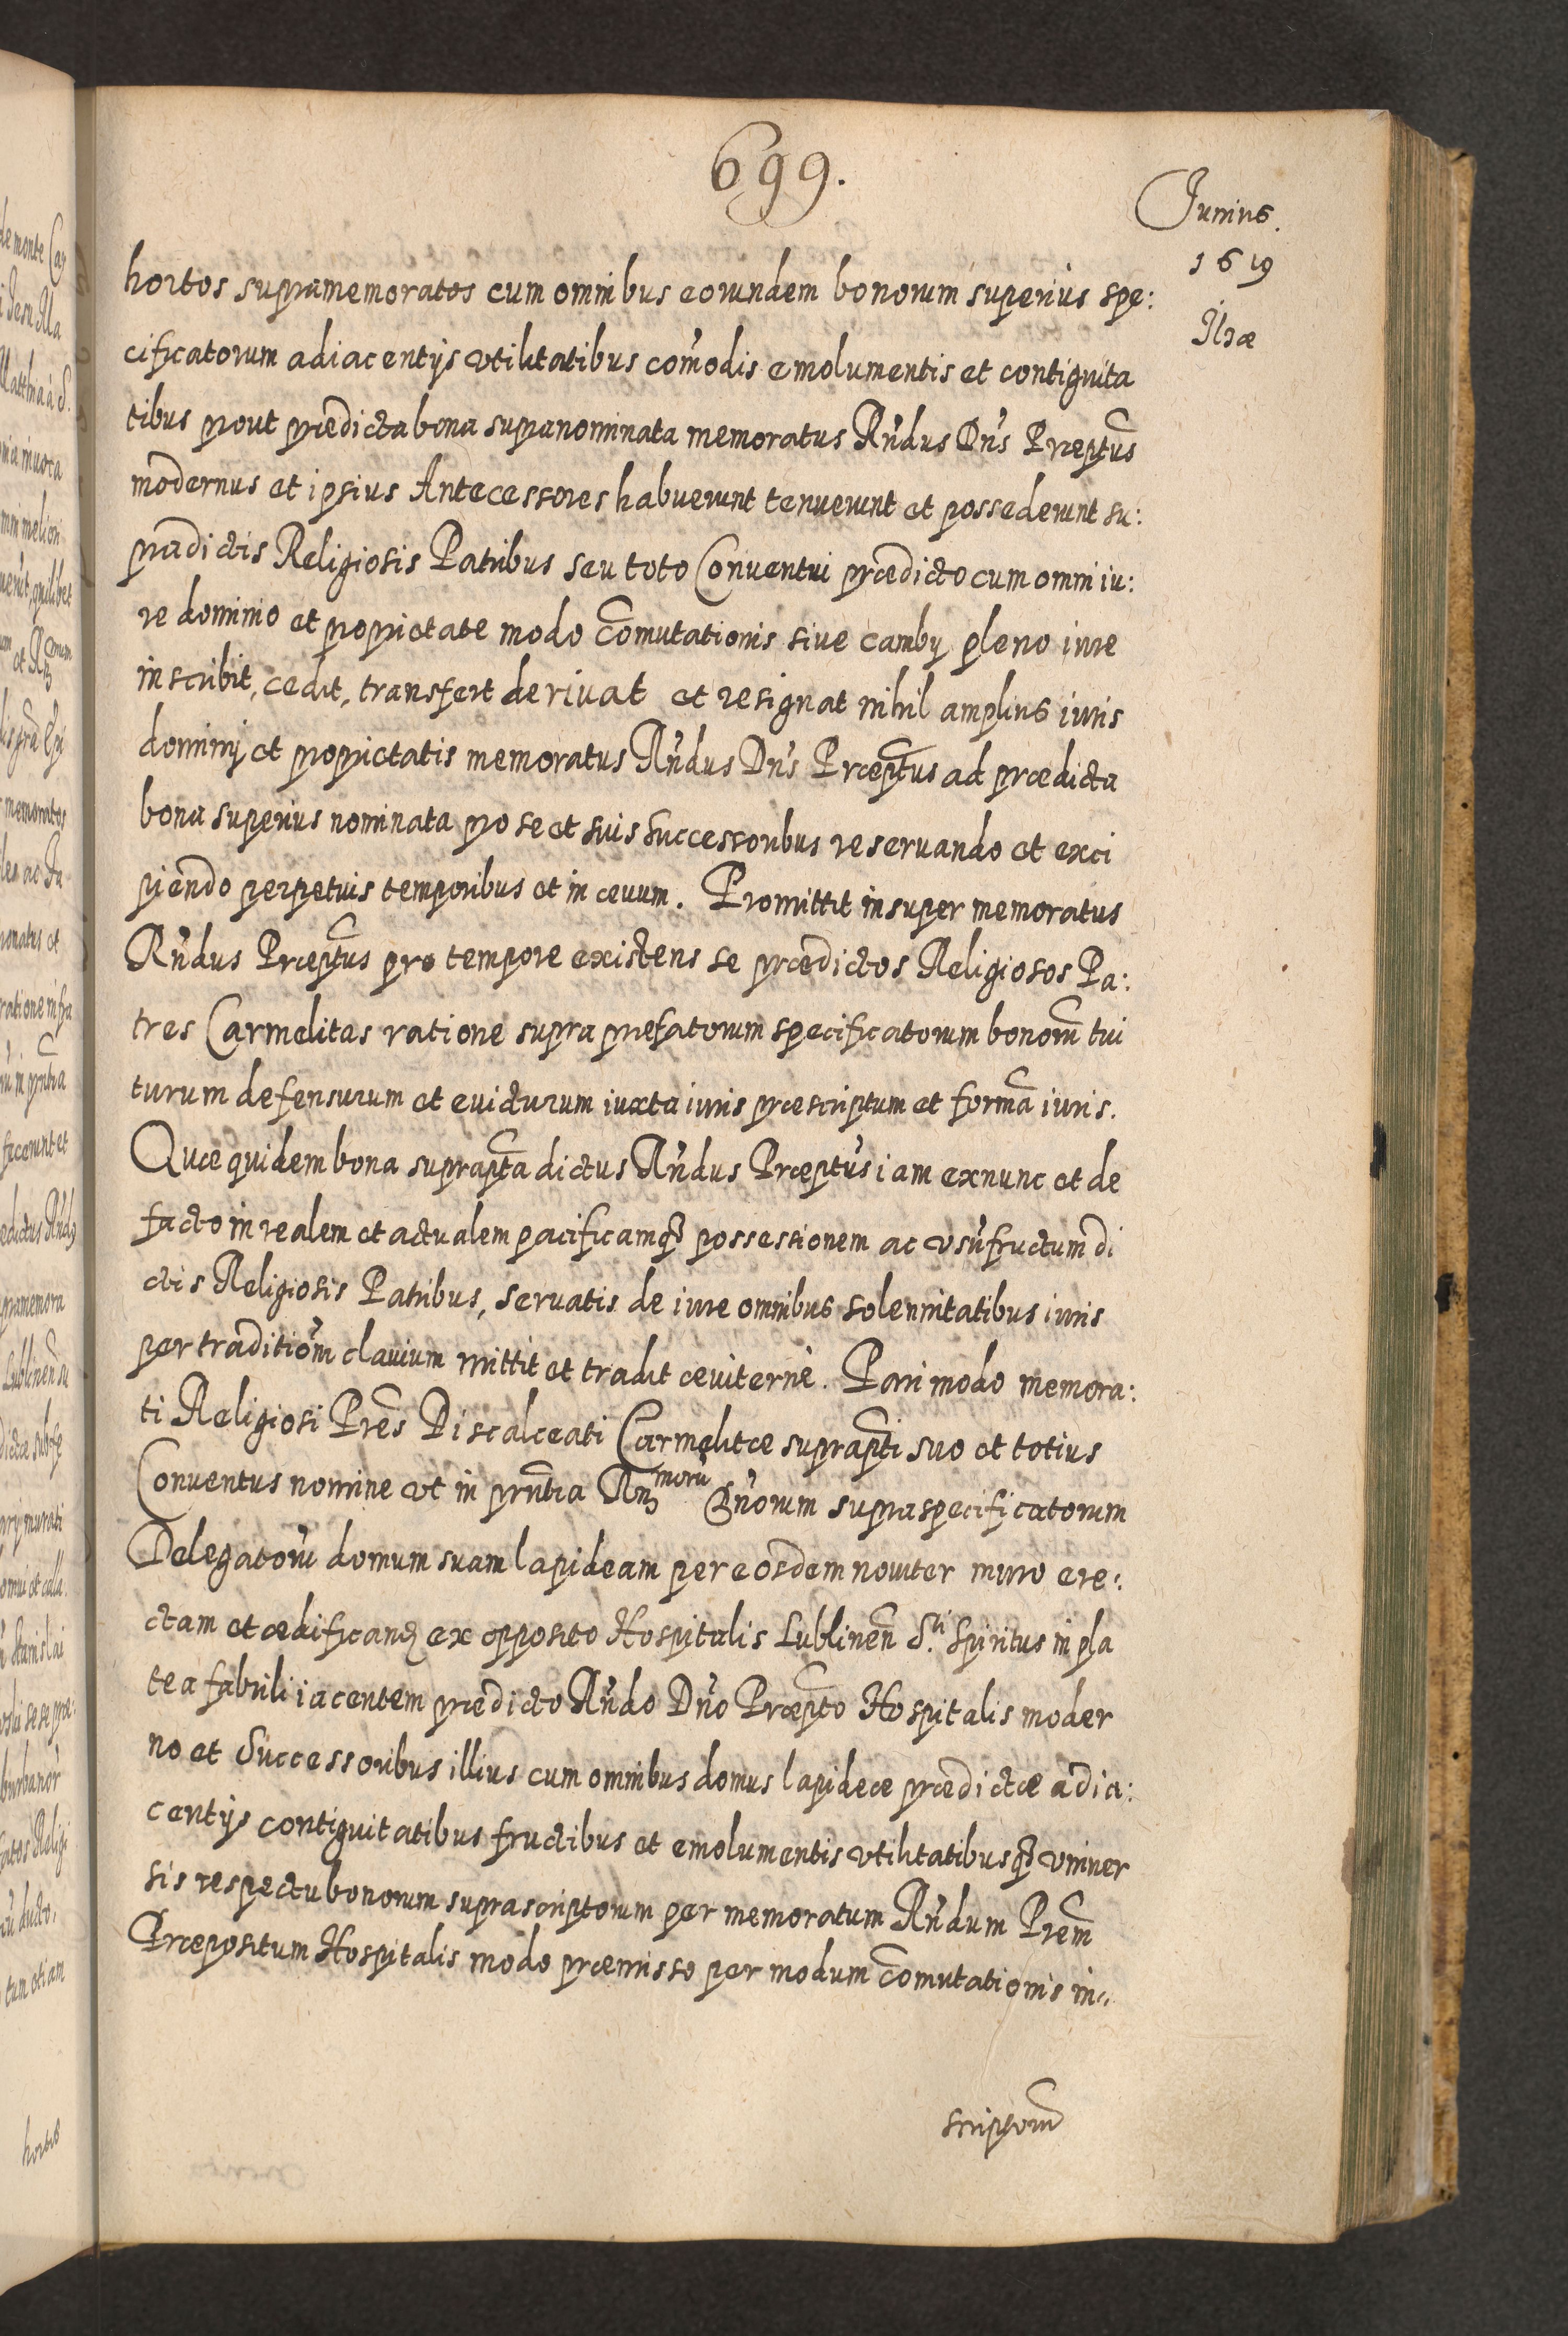 699.
Junius.
1619
Ilzæ
hortos supramemoratos cum omnibus eorundem bonorum superius spe:
cificatorum adiacentijs vtilitatibus com̃odis emolumentis et contiguita
tibus prout prædicta bona supranominata memoratus Rñdus Dñs Præptũs
modernus et ipsius Antecessores habuerunt tenuerunt et possederunt su:
pradictis Religiosis Patribus seu toto Conventui prædicto cum omni iu:
re dominio et proprietate modo com̃utationis siue cambij pleno iure
inscribit, cedit, transfert derivat et resignat nihil amplius iuris
dominij et proprietatis memoratus Rñdus Dñs Præptũs ad prædicta
bona superius nominata pro se et suis successoribus reseruando et exci
piendo perpetuis temporibus et in ævum. Promittit insuper memoratus
Rñdus Præptũs pro tempore existens se prædictos Religiosos Pa:
tres Carmelitas ratione supra præfatorum specificatorum bonorũ tui
turum defensurum et evicturum iuxta iuris præscriptum et formã iuris.
Quæ quidem bona suprapt̃a dictus Rñdus Præptũs iam exnunc et de
facto in realem et actualem pacificamq3 possessionem ac vsũfructum di
ctis Religiosis Patribus, servatis de iure omnibus solennitatibus iuris
per traditiom̃ clavium mittit et tradit æviternè. Pari modo memora:
ti Religiosi Prẽs Discalceati Carmelitæ suprapt̃i suo et totius
Conventus nomine vt in prñtia Rñ3 morũ Dñorum supraspecificatorum
Delegatorũ domum suam lapideam per eosdem noviter muro ere:
ctam et ædificanđ ex opposito Hospitalis Lublinen̄ S.ti Spiritus in pla
tea fabrili iacentem prædicto Rñdo Dño Præpt̃o Hospitalis moder
no et Successoribus illius cum omnibus domus lapideæ prædictæ adia:
centijs contiguitatibus fructibus et emolumentis vtilitatibusq3 vniver
sis respectu bonorum suprascriptorum per memoratum Rñdum Prẽm
Præpositum Hospitalis modo præmisso per modum com̃utationis in„
scriptorũ